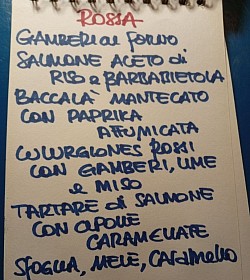 ROSSA
GAMBERI al FORNO
SALMONE ACETO di
RISO e BARBABIETOLA
BACCALÀ MANTECATO
CON PAPRIKA
AFFUMICATA
CULURGIONES ROSSI
CON GAMBERI, LIME
e MISO
TARTARE di SALMONE
CON CIPOLLE
CARAMELLATE
SFOGLIA, MELE, CARAMELLO